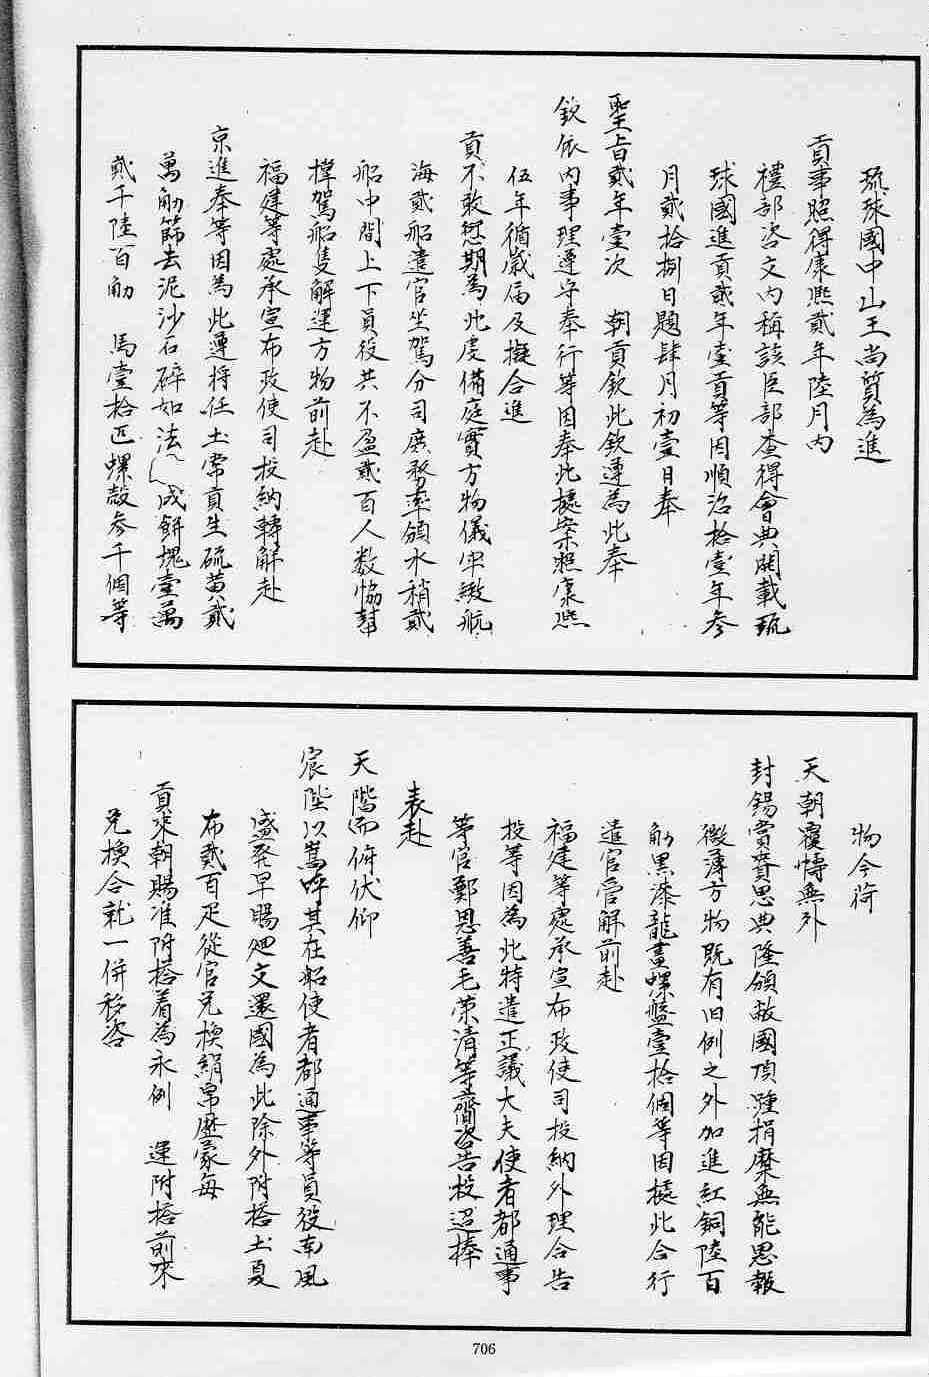 琉球國中山王尚質為進
貢事照得康熙貳年陸月內
禮部咨文內稱該臣部查得會典開載琉
球國進貢貳年壹貢等因順治拾壹年參
月貳拾捌日題肆月初壹日奉
聖旨貳年壹次　朝貢欽此欽遵為此奉
欽依內事理遵守奉行等因奉此據案照康熙
伍年循歲届及擬合進
貢不敢愆期為此虔備庭實方物儀牢緻航
海貳船遣官坐駕分司庶務率領水稍貳
船中間上下員役共不盈貳百人數恊幇
撑駕船隻解運方物前赴
福建等處承宣布政使司投納轉解赴
京進奉等因為此遵將任土常貢生硫黄貳
萬觔篩去泥沙石碎如法　成餅塊壹萬
貳千陸百觔　馬壹拾匹螺殼參千個等
物今荷
天朝覆幬無外
封錫賞賚恩典隆頒敝國頂踵捐糜無能思報
微薄方物既有旧例之外加進紅銅陸百
觔黑漆龍畫螺盤壹拾個等因據此合行
遣官管解前赴
福建等處承宣布政使司投納外理合告
投等因為此特遣正議大夫使者都通事
等官鄭思善毛榮清等齎咨告投迢捧
表赴
天階而俯伏仰
宸陛以嵩呼其在船使者都通事等員役南風
盛發早賜廻文還國為此除外附搭土夏
布貳百疋從官兌換絹帛歷蒙每
貢來朝賜准附搭着為永例　運附搭前來
兌換合就一併移咨
706